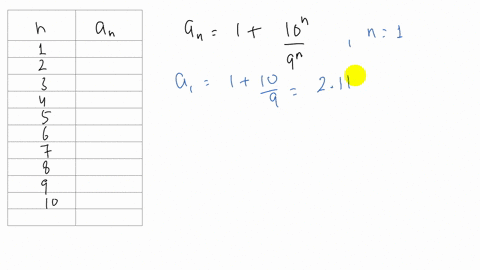 n aₙ
1
2
3
4
5
6
7
8
9
10
aₙ = 1 + 10ⁿ/9ⁿ , n = 1
a₁ = 1 + 10/9 = 2.11